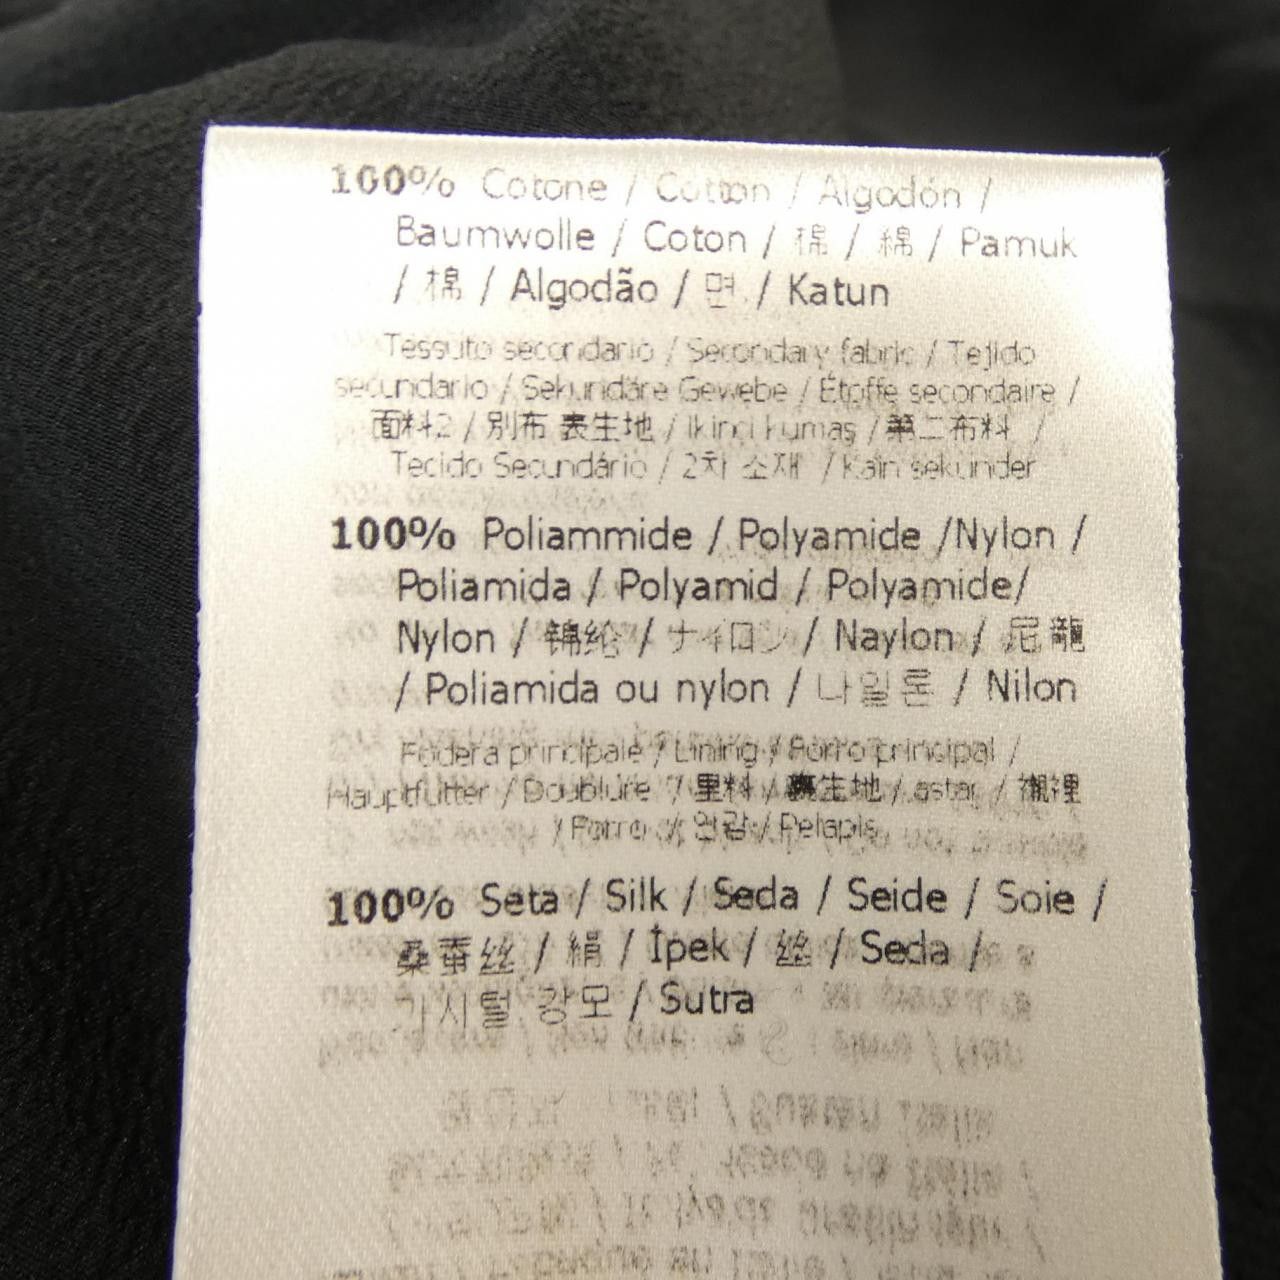 100% Cotone / Cotton / Algodón /
Baumwolle / Coton / 棉 / 綿 / Pamuk
/ 棉 / Algodão / 면 / Katun
Tessuto secondario / Secondary fabric / Tejido
secundario / Sekundäre Gewebe / Étoffe secondaire /
面料2 / 別布 表生地 / Ikinci kumaş / 第二布料 /
Tecido Secundário / 2차 소재 / Kain sekunder
100% Poliammide / Polyamide /Nylon /
Poliamida / Polyamid / Polyamide/
Nylon / 锦纶 / ナイロン / Naylon / 尼龍
/ Poliamida ou nylon / 나일론 / Nilon
Fodera principale / Lining / Forro principal /
Hauptfutter / Doublure / 里料 / 裏生地 / astar / 襯裡
/ Forro / 안감 / Pelapis
100% Seta / Silk / Seda / Seide / Soie /
桑蚕丝 / 絹 / İpek / 丝 / Seda /
가시털 강모 / Sutra